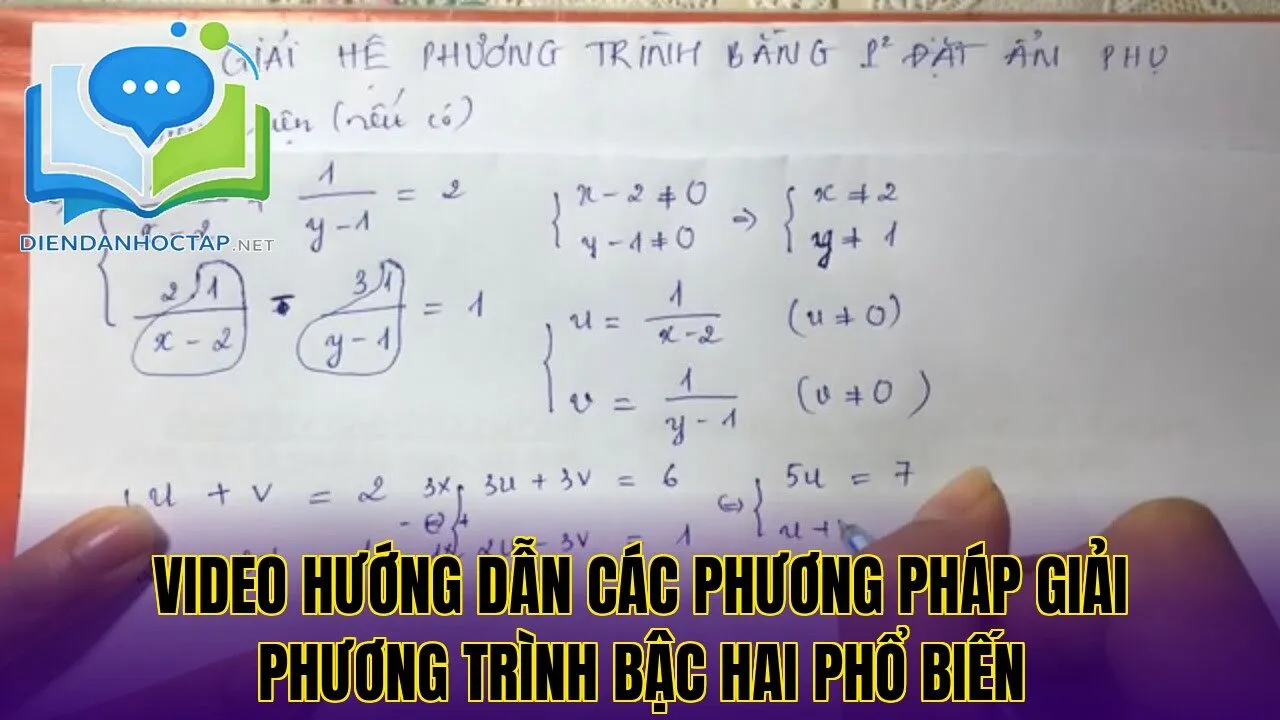 GIẢI HỆ PHƯƠNG TRÌNH BẰNG P² ĐẶT ẨN PHỤ
(nếu có)
DIENDANHOCTAP.NET
x - 2 + 1/(y - 1) = 2
{ x - 2 ≠ 0 => { x ≠ 2
y - 1 ≠ 0 y ≠ 1
{ 2.1/(x - 2) - 3.1/(y - 1) = 1
{ u = 1/(x - 2) (u ≠ 0)
v = 1/(y - 1) (v ≠ 0)
{ u + v = 2 3x { 3u + 3v = 6 <=> { 5u = 7
2u - 3v = 1 u +
VIDEO HƯỚNG DẪN CÁC PHƯƠNG PHÁP GIẢI
PHƯƠNG TRÌNH BẬC HAI PHỔ BIẾN